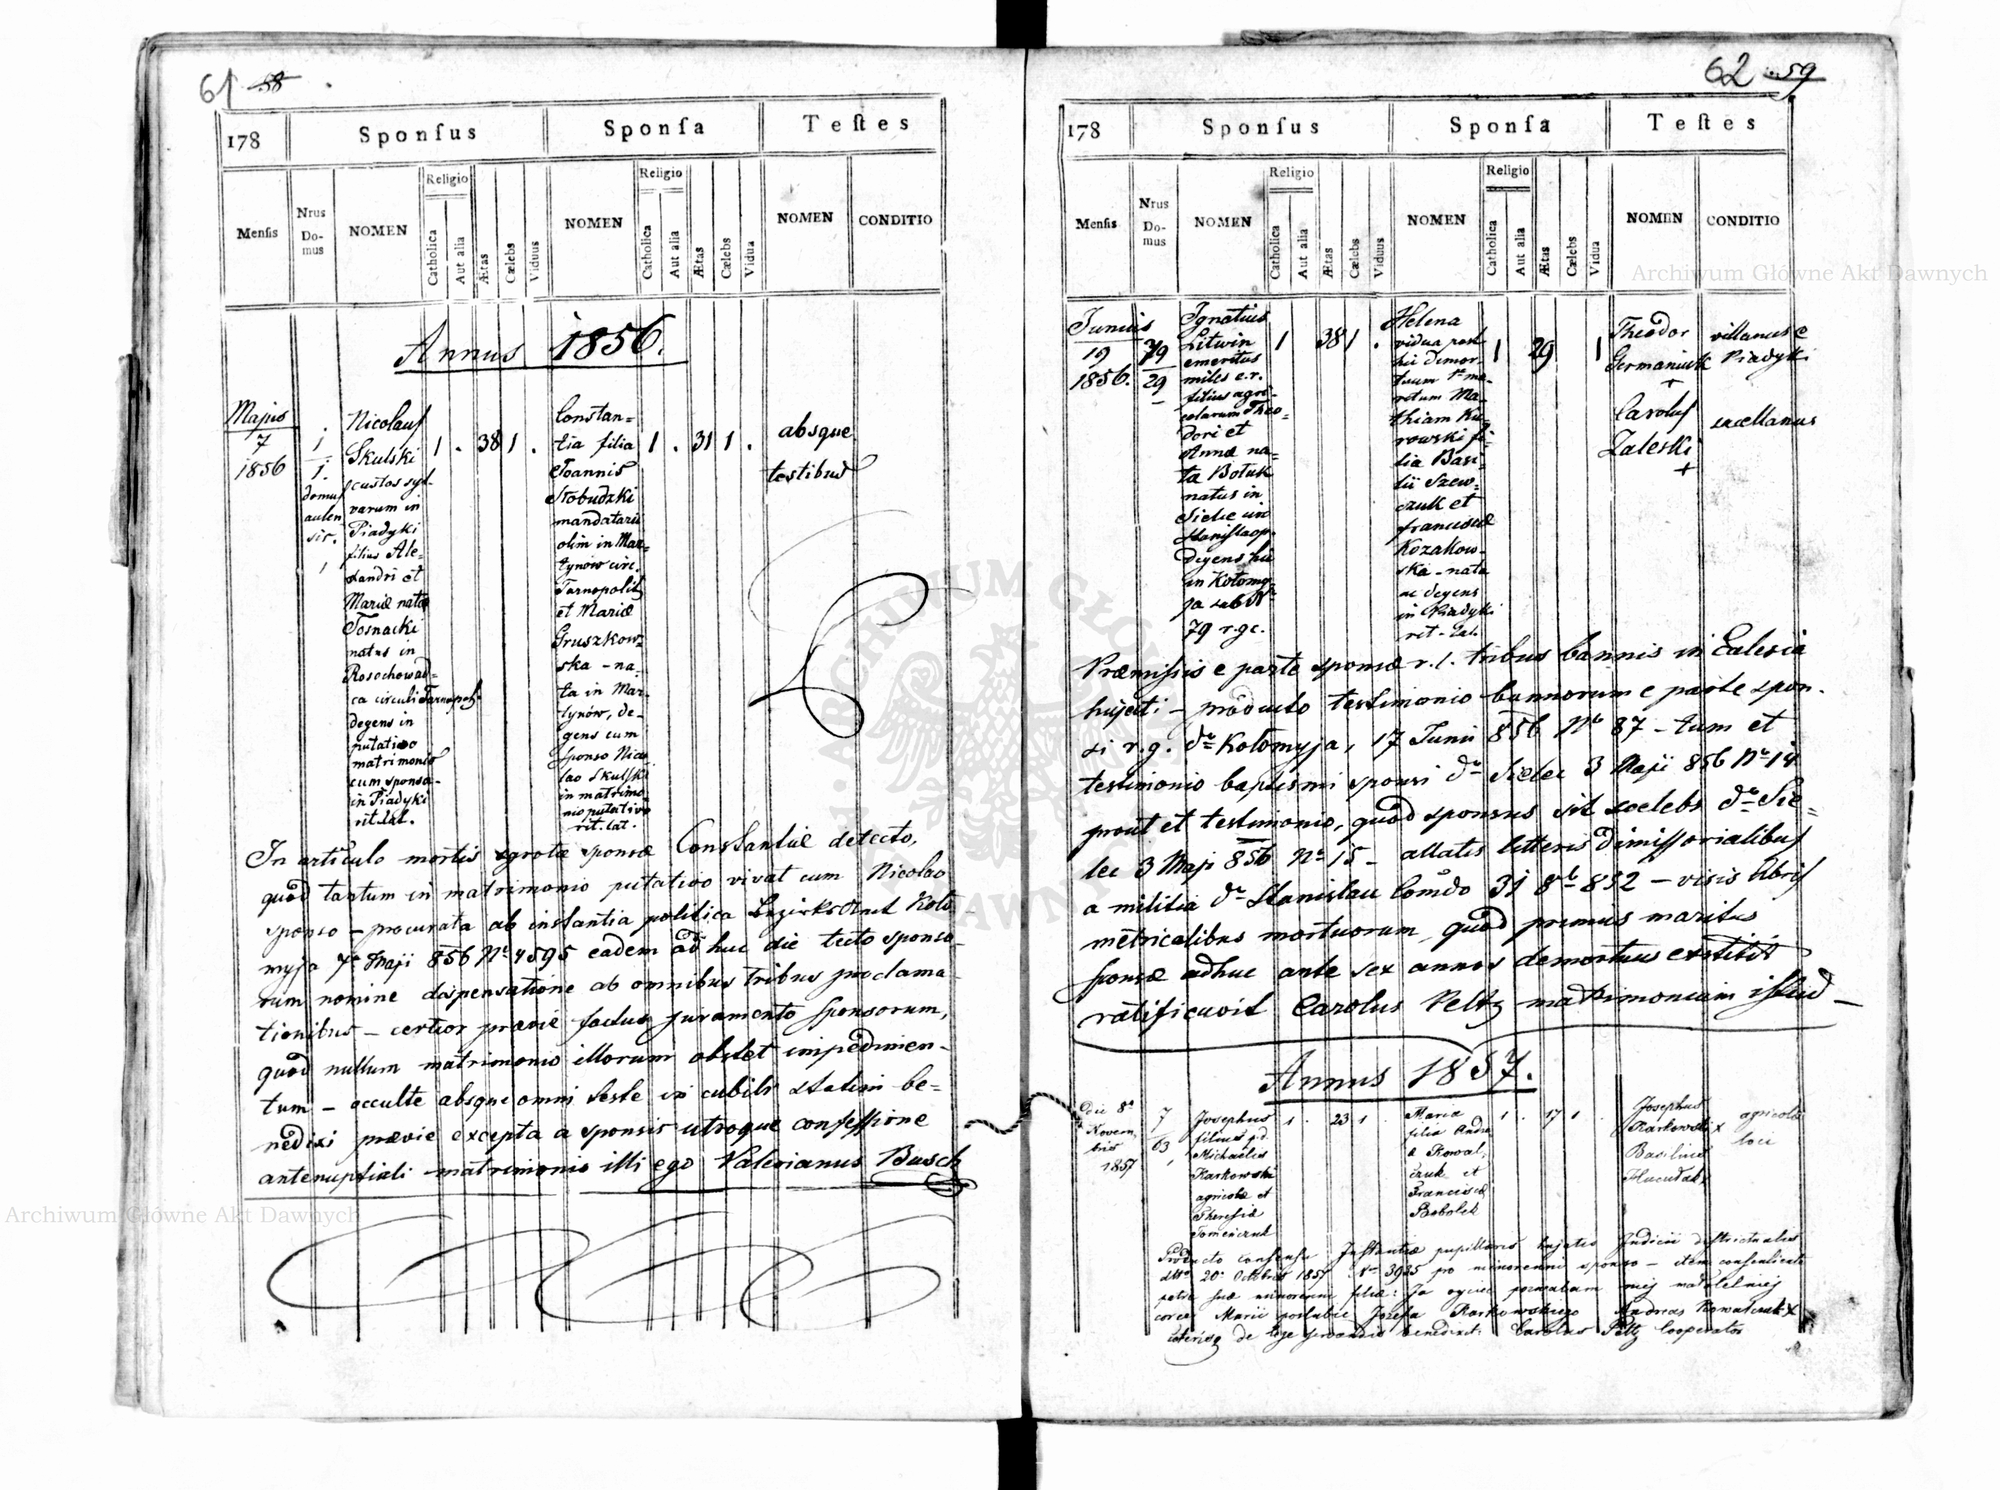 61 58
178 Sponſus Sponſa Teſtes
Menſis Nrus Do-mus NOMEN Religio Catholica Aut alia Ætas Cœlebs Viduus NOMEN Religio Catholica Aut alia Ætas Cœlebs Vidua NOMEN CONDITIO
Annus 1856.
Majus
7
1856
1
1.
domus
aulen
sis.
Nicolaus
Skulski
custos syl-
varum in
Piadyki
filius Ale-
xandri et
Mariæ natæ
Tosnacki
natus in
Rosochowad-
ca circuli Tarnopol.
degens in
putativo
matrimonio
cum sponsa
in Piadyki
rit. lat.
1 . 38 1 .
Constan=
tia filia
Joannis
Stobudzki
mandatarii
olim in Mar=
tynów circ.
Tarnopolis
et Mariæ
Gruszkow=
ska - na-
ta in Mar-
tynów, de-
gens cum
sponso Nico
lao Skulski
in matrimo
nio putativo
rit. lat.
1 . 31 1 .
absque
testibus
In articulo mortis ægrotæ sponsæ Constantiæ detecto,
quod tantum in matrimonio putativo vivat cum Nicolao
sponso - procurata ab instantia politica Bezirks Amt Kolo-
myja 7a Maji 856 No 4595 eadem ad huc die tecto sponso-
rum nomine dispensatione ab omnibus tribus proclama-
tionibus - certior prævie factus juramento sponsorum,
quod nullum matrimonio illorum obstet impedimen-
tum - occulte absque omni teste in cubili statim be=
nedixi prævie excepta a sponsis utroque confessione
antenuptiali matrimonio illi ego Valerianus Busch
62 59
178 Sponſus Sponſa Teſtes
Menſis Nrus Do-mus NOMEN Religio Catholica Aut alia Ætas Cœlebs Viduus NOMEN Religio Catholica Aut alia Ætas Cœlebs Vidua NOMEN CONDITIO
Junius
19
1856.
79
29
Ignatius
Litwin
emeritus
miles e.r.
filius agri-
colarum Theo=
dori et
Annæ na-
ta Botuk
natus in
Sielec in
Stanislaop.
degens hic
in Kołomy-
ja sub No
79 r.gc.
1 38 1 .
Helena
vidua post
hic demor-
tuum 1m ma-
ritum Ma-
thiam Ku-
rowski fi-
lia Basi-
lii Szew-
czuk et
franciscæ
Kozakow-
ska - nata
ac degens
in Piadyki
rit - lat.
1 29 1
Theodor
Germaniuk
+
Carolus
Zaleski
+
villanus e
Piadyki
Præmissis e parte sponsæ r.l. tribus bannis in Eclesia
hujati - producto testimonio bannorum e parte spon-
si r.g. do Kołomyja, 17 Junii 856 No 87 - tum et
testimonio baptismi sponsi do Sielec 3 Maji 856 No 14
prout et testimonio, quod sponsus sit coelebs do Sie=
lec 3 Maji 856 No 15 - allatis litteris dimissorialibus
a militia do Stanislau Comdo 31 8b 852 - visis libris
metricalibus mortuorum quod primus maritus
sponsæ adhuc ante sex annos demortuus exstitit
ratificavit Carolus Peltz matrimonium istud -
Annus 1857.
Die 8a
Novem
bris
1857
7
63
Josephus
filius pd.
Michaelis
Karkowski
agricolæ et
Theresiæ
1 . 23 1 .
Maria
filia Andre
æ Kowal
czuk et
Franciscæ
Bobolek
1 . 17 1 .
Josephus
Karkowski x
Basilius
agricolæ
loci
Producto Consensu Instantiæ pupillaris hujatis Judicii districtualis
ddto 20. Octobris 1857 No 3935 pro minorenni sponso - item consensu
patris suæ minorennis filiæ: Ja ojciec pozwalam mej małoletniej
corce Marii poslubić Józefa Karkowskiego Andreas Kowalczuk x
de lege benedixit: Carolus Peltz Cooperator
Archiwum Główne Akt Dawnych
Archiwum Główne Akt Dawnych
ARCHIWUM GŁÓWNE AKT DAWNYCH